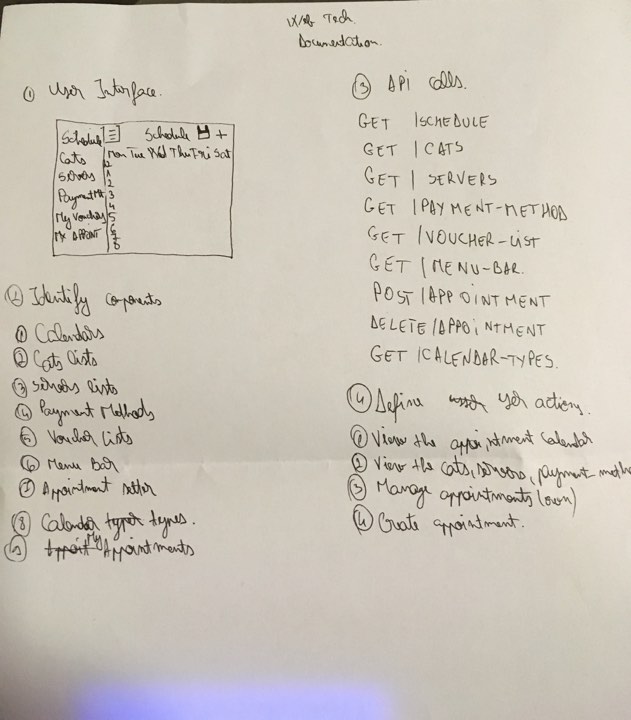 Tech
Documentation.
① User Interface.
Schedule Schedule +
Cats Mon Tue Wed Thu Fri Sat
1
2
3
4
My Vouchers 5
6
7
8
② Identify components
① Calendars
② Cats lists
③ Servers lists
④ Payment Methods
⑤ Voucher Lists
⑥ Menu Bar
⑦ Appointment setter
⑧ Calendar types.
⑨ My Appointments
③ API calls.
GET /SCHEDULE
GET /CATS
GET / SERVERS
GET /PAYMENT-METHOD
GET /VOUCHER-LIST
GET /MENU-BAR.
POST/APPOINTMENT
DELETE/APPOINTMENT
GET /CALENDAR-TYPES.
④ Define user actions.
① View the appointment calendar
② View the cats, servers, payment-metho
③ Manage appointments (own)
④ Create appointment.